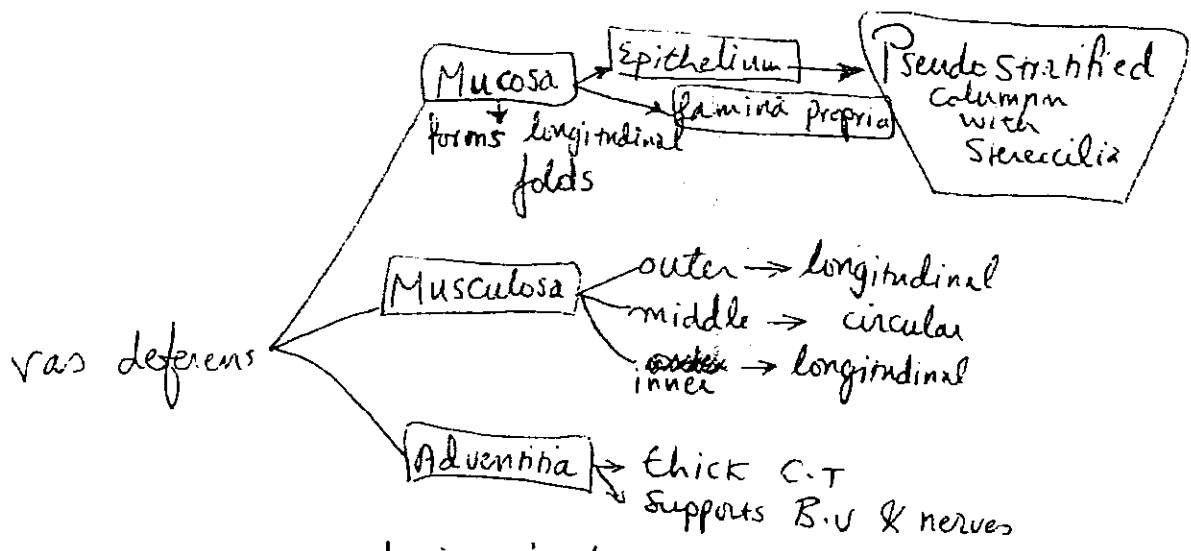 Mucosa
forms longitudinal
folds
Epithelium
lamina propria
Pseudostratified
Column
with
Stereocilia
vas deferens
Musculosa
outer → longitudinal
middle → circular
inner → longitudinal
Adventitia
→ thick C.T
Supports B.V & nerves